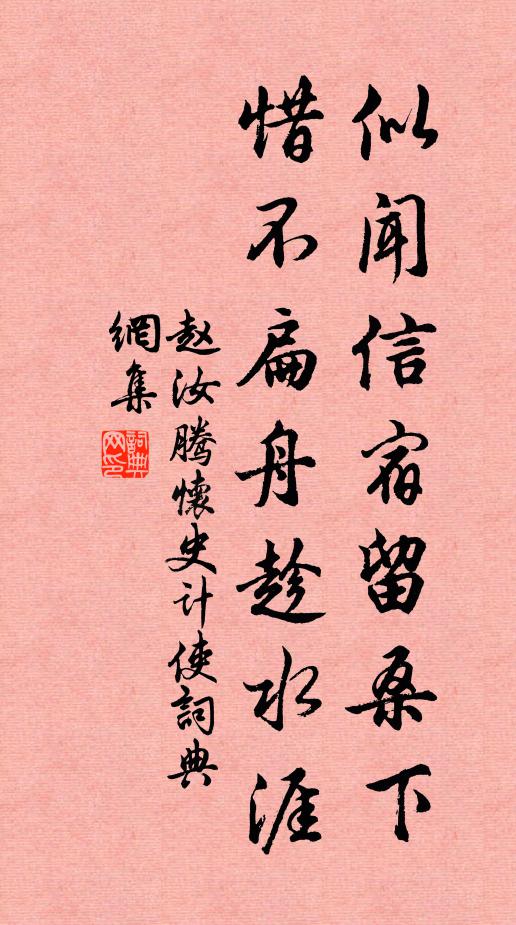 似闻信宿留桑下
惜不扁舟趁水涯
赵汝腾懷史计使詞典
網集
詞典網印